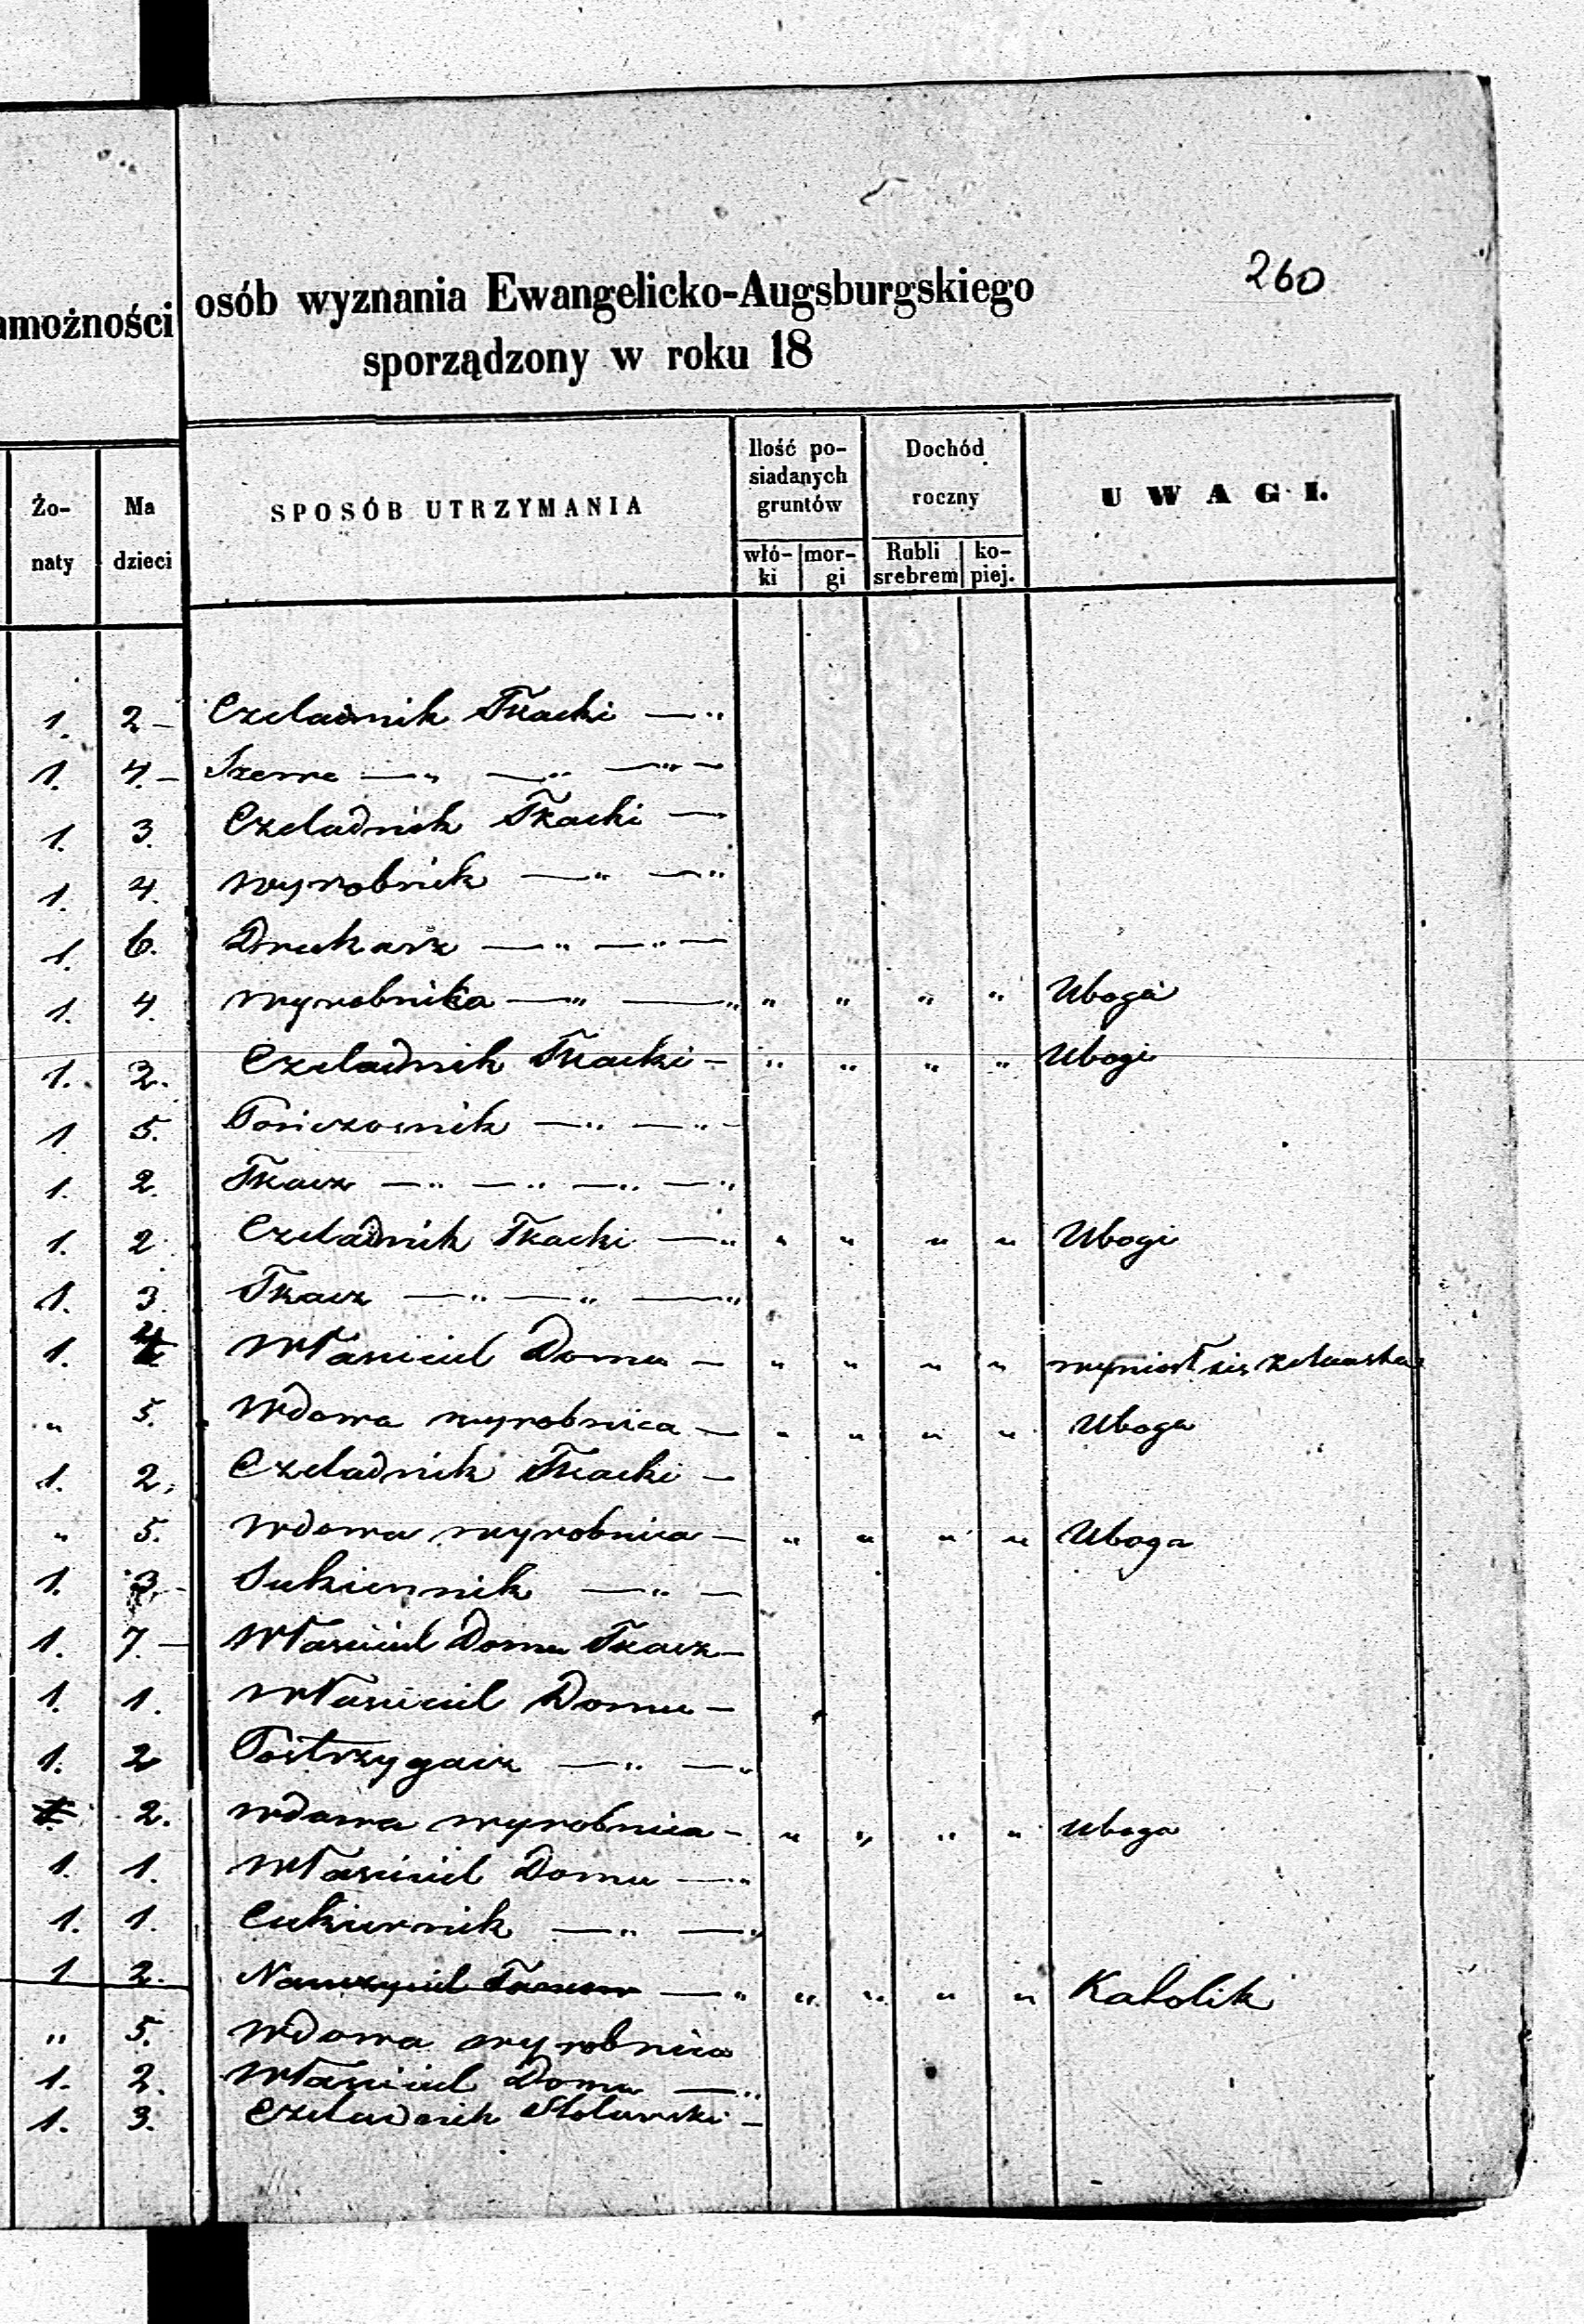 260
amożności osób wyznania Ewangelicko-Augsburgskiego
sporządzony w roku 18
Żo- naty Ma dzieci SPOSÓB UTRZYMANIA Ilość po- siadanych gruntów Dochód roczny UWAGI.
włó- ki mor- gi Rubli srebrem ko- piej.
1. 2 – Czeladnik Tkacki — "
1. 4. – Szewc — " — " — " —
1. 3. Czeladnik Tkacki —
1. 4. wyrobnik — " — "
1. 6. Drukarz — " — " —
1. 4. wyrobnika — " — " " " " " Uboga
1. 2. Czeladnik Tkacki – " " " " Ubogi
1 5. Pończosnik — " — " –
1. 2. Tkacz — " — " — " — "
1. 2 Czeladnik Tkacki — " " " " " Ubogi
1. 3. Tkacz — " — " — "
1. 4 Własciciel Domu – " " " " wyniosł się
" 5. Wdowa wyrobnica – " " " " Uboga
1. 2. Czeladnik Tkacki –
" 5. wdowa wyrobnica – " " " " Uboga
1. 3 – Sukiennik — " —
1. 7. – Własciciel Domu Tkacz –
1. 1. Własciciel Domu –
1. 2 Postrzygacz — " — "
1. 2. wdowa wyrobnica – " " " " uboga
1. 1. Własciciel Domu — "
1. 1. Cukiernik — " — "
1 2. Nauczyciel — " " " " " Katolik
" 5. wdowa wyrobnica
1. 2. Własciciel Domu — "
1. 3. Czeladnik Stolarski –